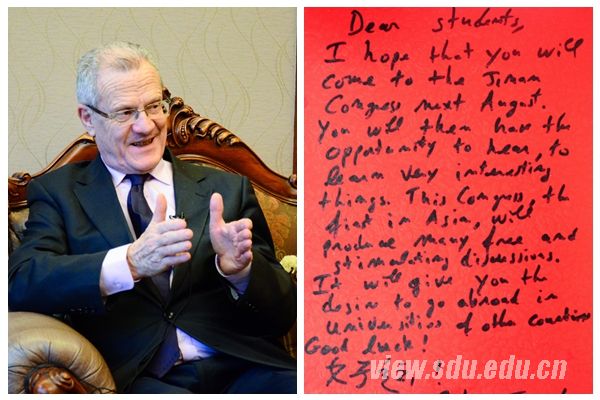 Dear students,
I hope that you will
come to the Jinan
Congress next August.
You will then have the
opportunity to hear, to
learn very interesting
things. This Congress, the
first in Asia, will
produce many free and
stimulating discussions.
It will give you the
desire to go abroad in
universities of other countries
Good luck!
好运!
view.sdu.edu.cn